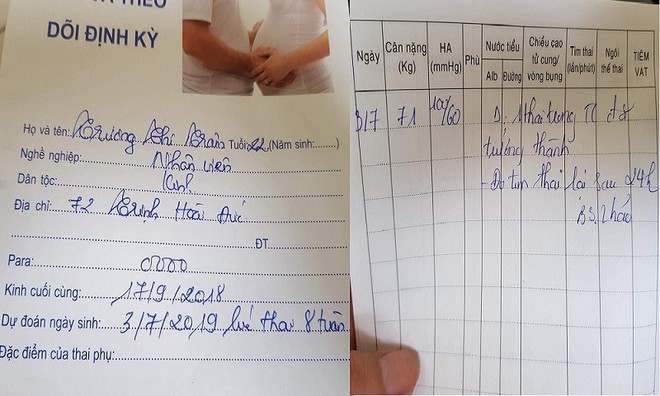 THEO
DÕI ĐỊNH KỲ
Họ và tên: Trương Thị Trâm Tuổi 22 (Năm sinh:......)
Nghề nghiệp: Nhân viên
Dân tộc: Kinh
Địa chỉ: 72 Trịnh Hoài Đức
ĐT
Para: 0000
Kinh cuối cùng: 17/9/2018
Dự đoán ngày sinh: 3/7/2019 lúc thai 8 tuần
Đặc điểm của thai phụ:
Ngày Cân nặng (Kg) HA (mmHg) Phù Nước tiểu Alb Đường Chiều cao tử cung/ vòng bụng Tim thai (lần/phút) Ngôi thế thai TIÊM VAT
3/7 71 100/60 D: 1 thai trong TC đã
trưởng thành
- Đo tim thai lại sau 24h
BS. Thảo